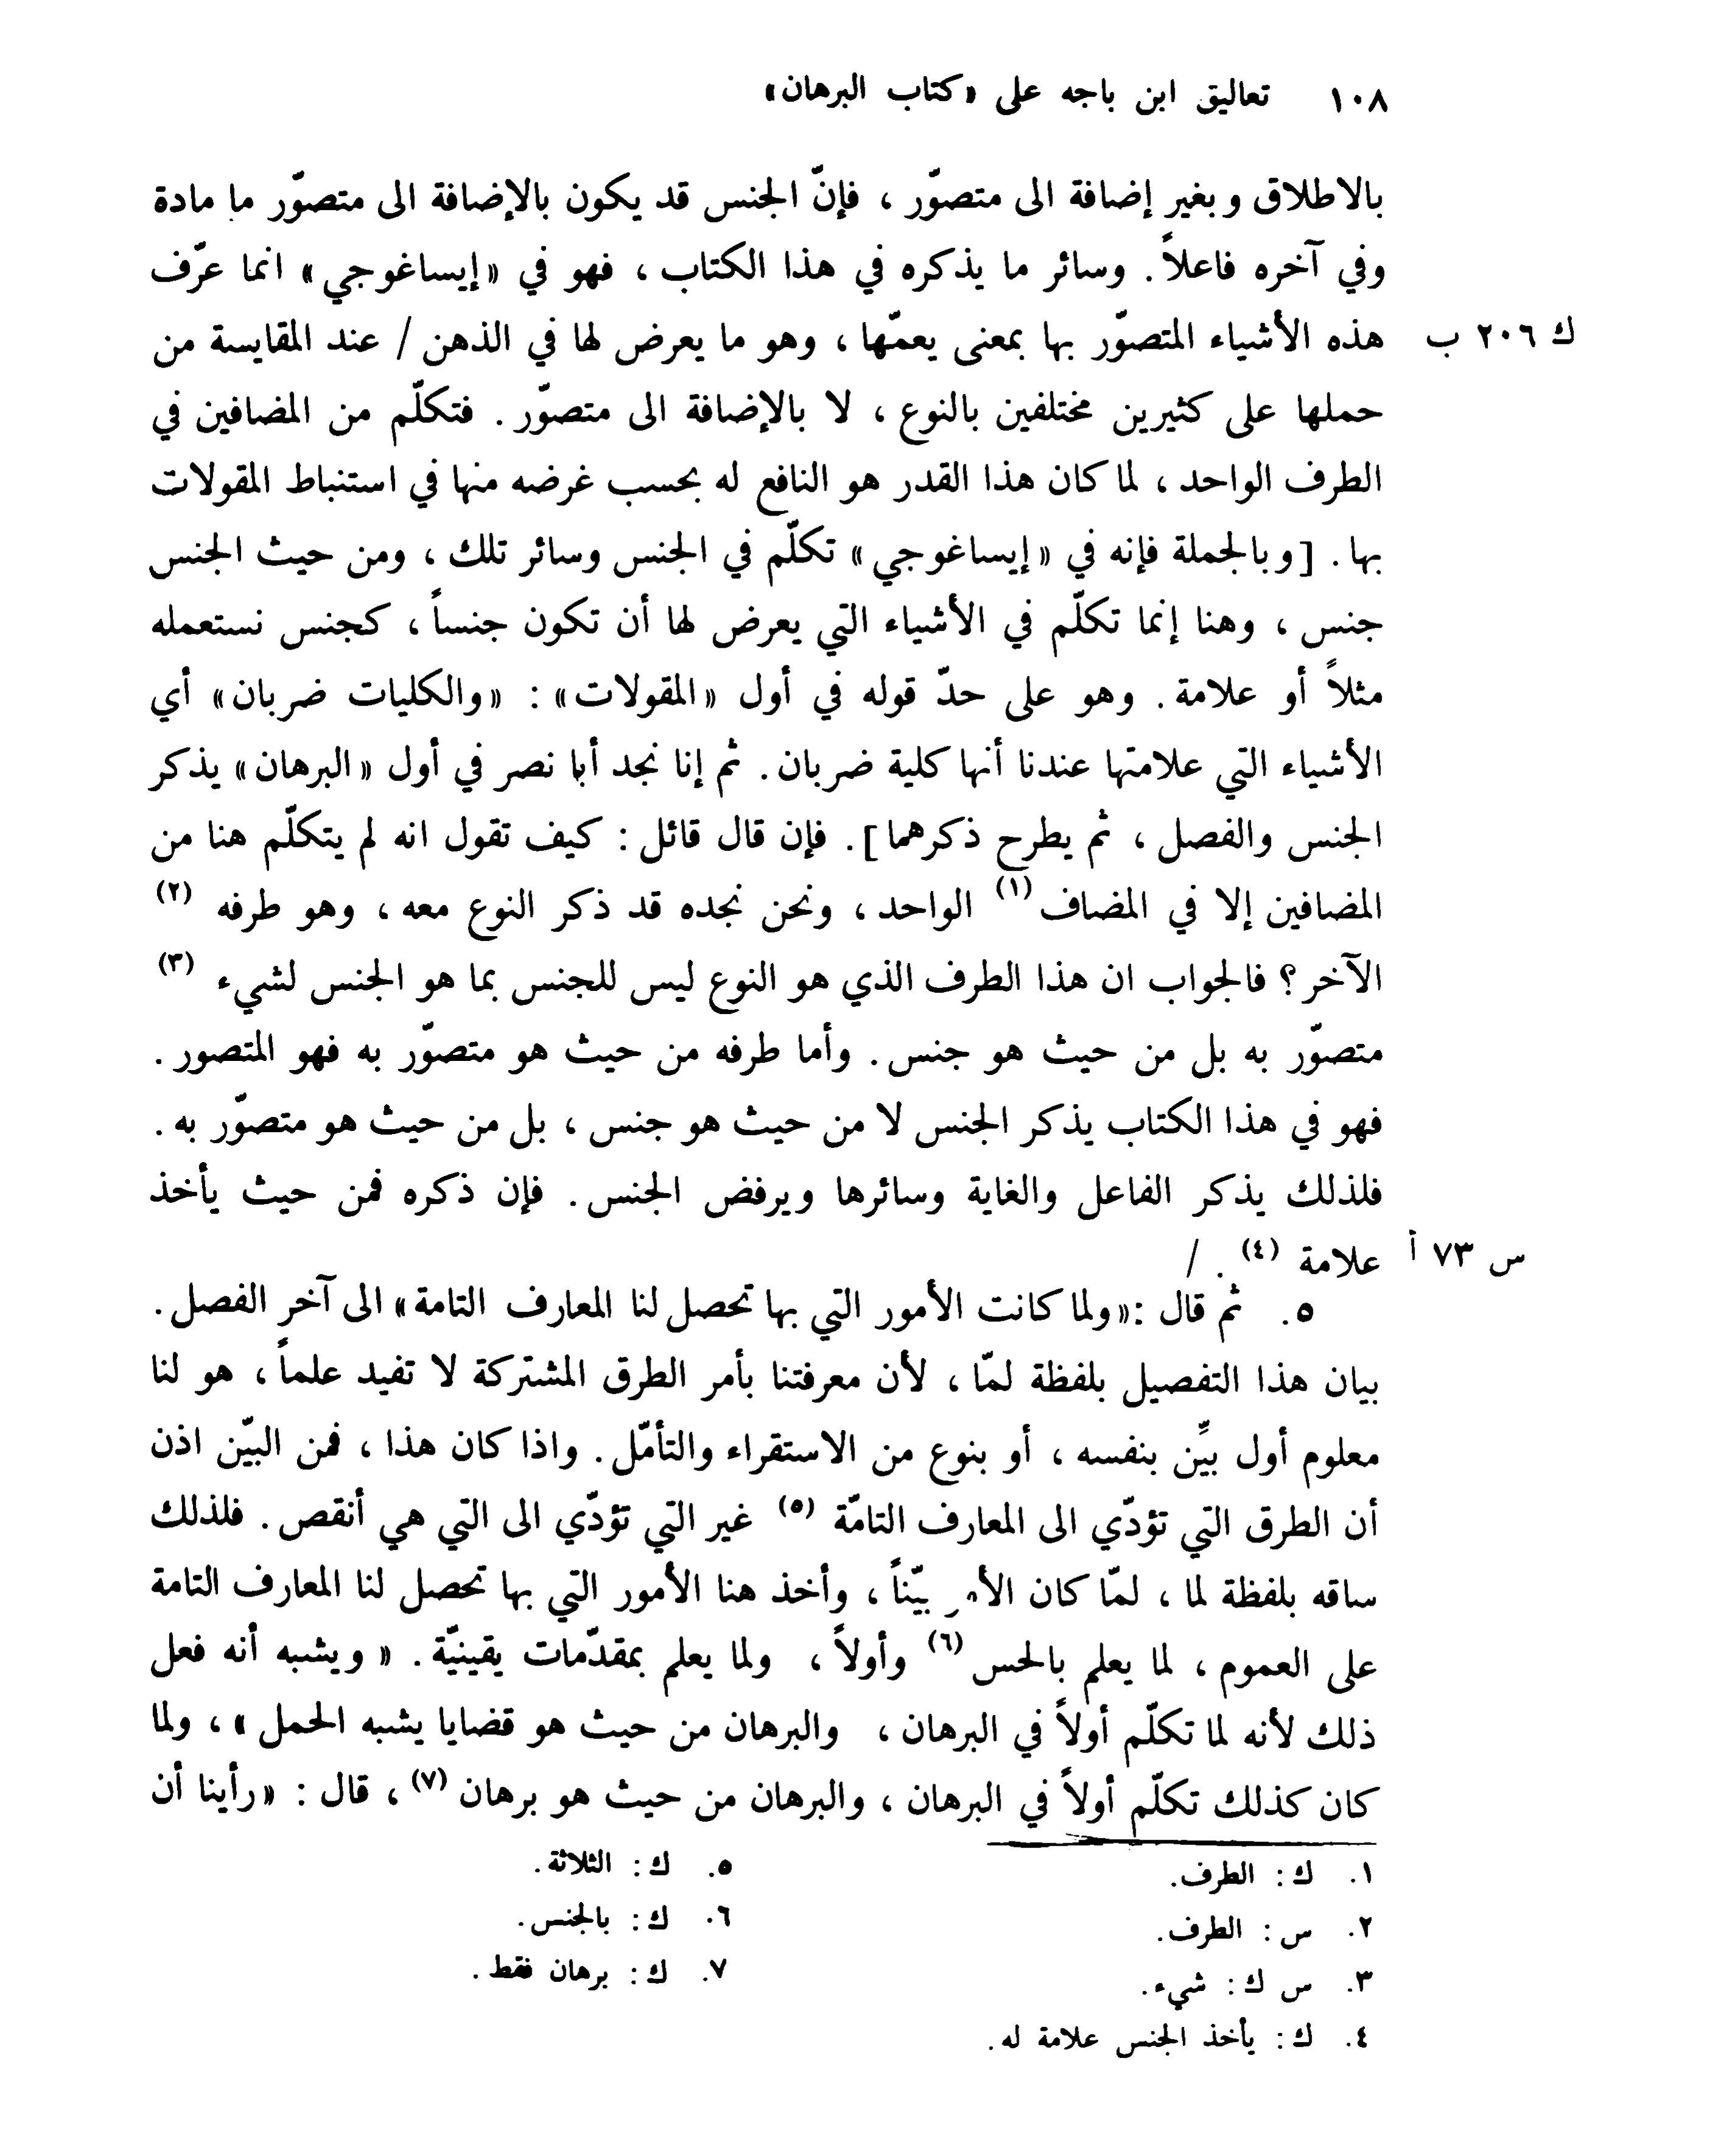 ١٠٨ تعاليق ابن باجه على «كتاب البرهان»
بالاطلاق وبغير إضافة الى متصوّر ، فإنّ الجنس قد يكون بالإضافة الى متصوّر ما مادة
وفي آخره فاعلاً . وسائر ما يذكره في هذا الكتاب ، فهو في «إيساغوجي» انما عرّف
ك ٢٠٦ ب هذه الأشياء المتصوّر بها بمعنى يعمّها ، وهو ما يعرض لها في الذهن / عند المقايسة من
حملها على كثيرين مختلفين بالنوع ، لا بالإضافة الى متصوّر . فتكلّم من المضافين في
الطرف الواحد ، لما كان هذا القدر هو النافع له بحسب غرضه منها في استنباط المقولات
بها . [وبالجملة فإنه في «إيساغوجي» تكلّم في الجنس وسائر تلك ، ومن حيث الجنس
جنس ، وهنا إنما تكلّم في الأشياء التي يعرض لها أن تكون جنساً ، كجنس نستعمله
مثلاً أو علامة . وهو على حدّ قوله في أول «المقولات» : «والكليات ضربان» أي
الأشياء التي علامتها عندنا أنها كلية ضربان . ثم إنا نجد أبا نصر في أول «البرهان» يذكر
الجنس والفصل ، ثم يطرح ذكرهما] . فإن قال قائل : كيف تقول انه لم يتكلّم هنا من
المضافين إلا في المضاف (١) الواحد ، ونحن نجده قد ذكر النوع معه ، وهو طرفه (٢)
الآخر ؟ فالجواب ان هذا الطرف الذي هو النوع ليس للجنس بما هو الجنس لشيء (٣)
متصوّر به بل من حيث هو جنس . وأما طرفه من حيث هو متصوّر به فهو المتصور .
فهو في هذا الكتاب يذكر الجنس لا من حيث هو جنس ، بل من حيث هو متصوّر به .
فلذلك يذكر الفاعل والغاية وسائرها ويرفض الجنس . فإن ذكره فمن حيث يأخذ
س ٧٣ أ علامة (٤) . /
٥. ثم قال : «ولما كانت الأمور التي بها تحصل لنا المعارف التامة» الى آخر الفصل .
بيان هذا التفصيل بلفظة لمّا ، لأن معرفتنا بأمر الطرق المشتركة لا تفيد علماً ، هو لنا
معلوم أول بيِّن بنفسه ، أو بنوع من الاستقراء والتأمّل . واذا كان هذا ، فمن البيّن اذن
أن الطرق التي تؤدّي الى المعارف التامّة (٥) غير التي تؤدّي الى التي هي أنقص . فلذلك
ساقه بلفظة لما ، لمّا كان الأمر بيّناً ، وأخذ هنا الأمور التي بها تحصل لنا المعارف التامة
على العموم ، لما يعلم بالحس (٦) وأولاً ، ولما يعلم بمقدّمات يقينيّة . « ويشبه أنه فعل
ذلك لأنه لما تكلّم أولاً في البرهان ، والبرهان من حيث هو قضايا يشبه الحمل » ، ولما
كان كذلك تكلّم أولاً في البرهان ، والبرهان من حيث هو برهان (٧) ، قال : «رأينا أن
١. ك : الطرف.
٢. س : الطرف.
٣. س ك : شيء.
٤. ك : يأخذ الجنس علامة له.
٥. ك : الثلاثة.
٦. ك : بالجنس.
٧. ك : برهان فقط .